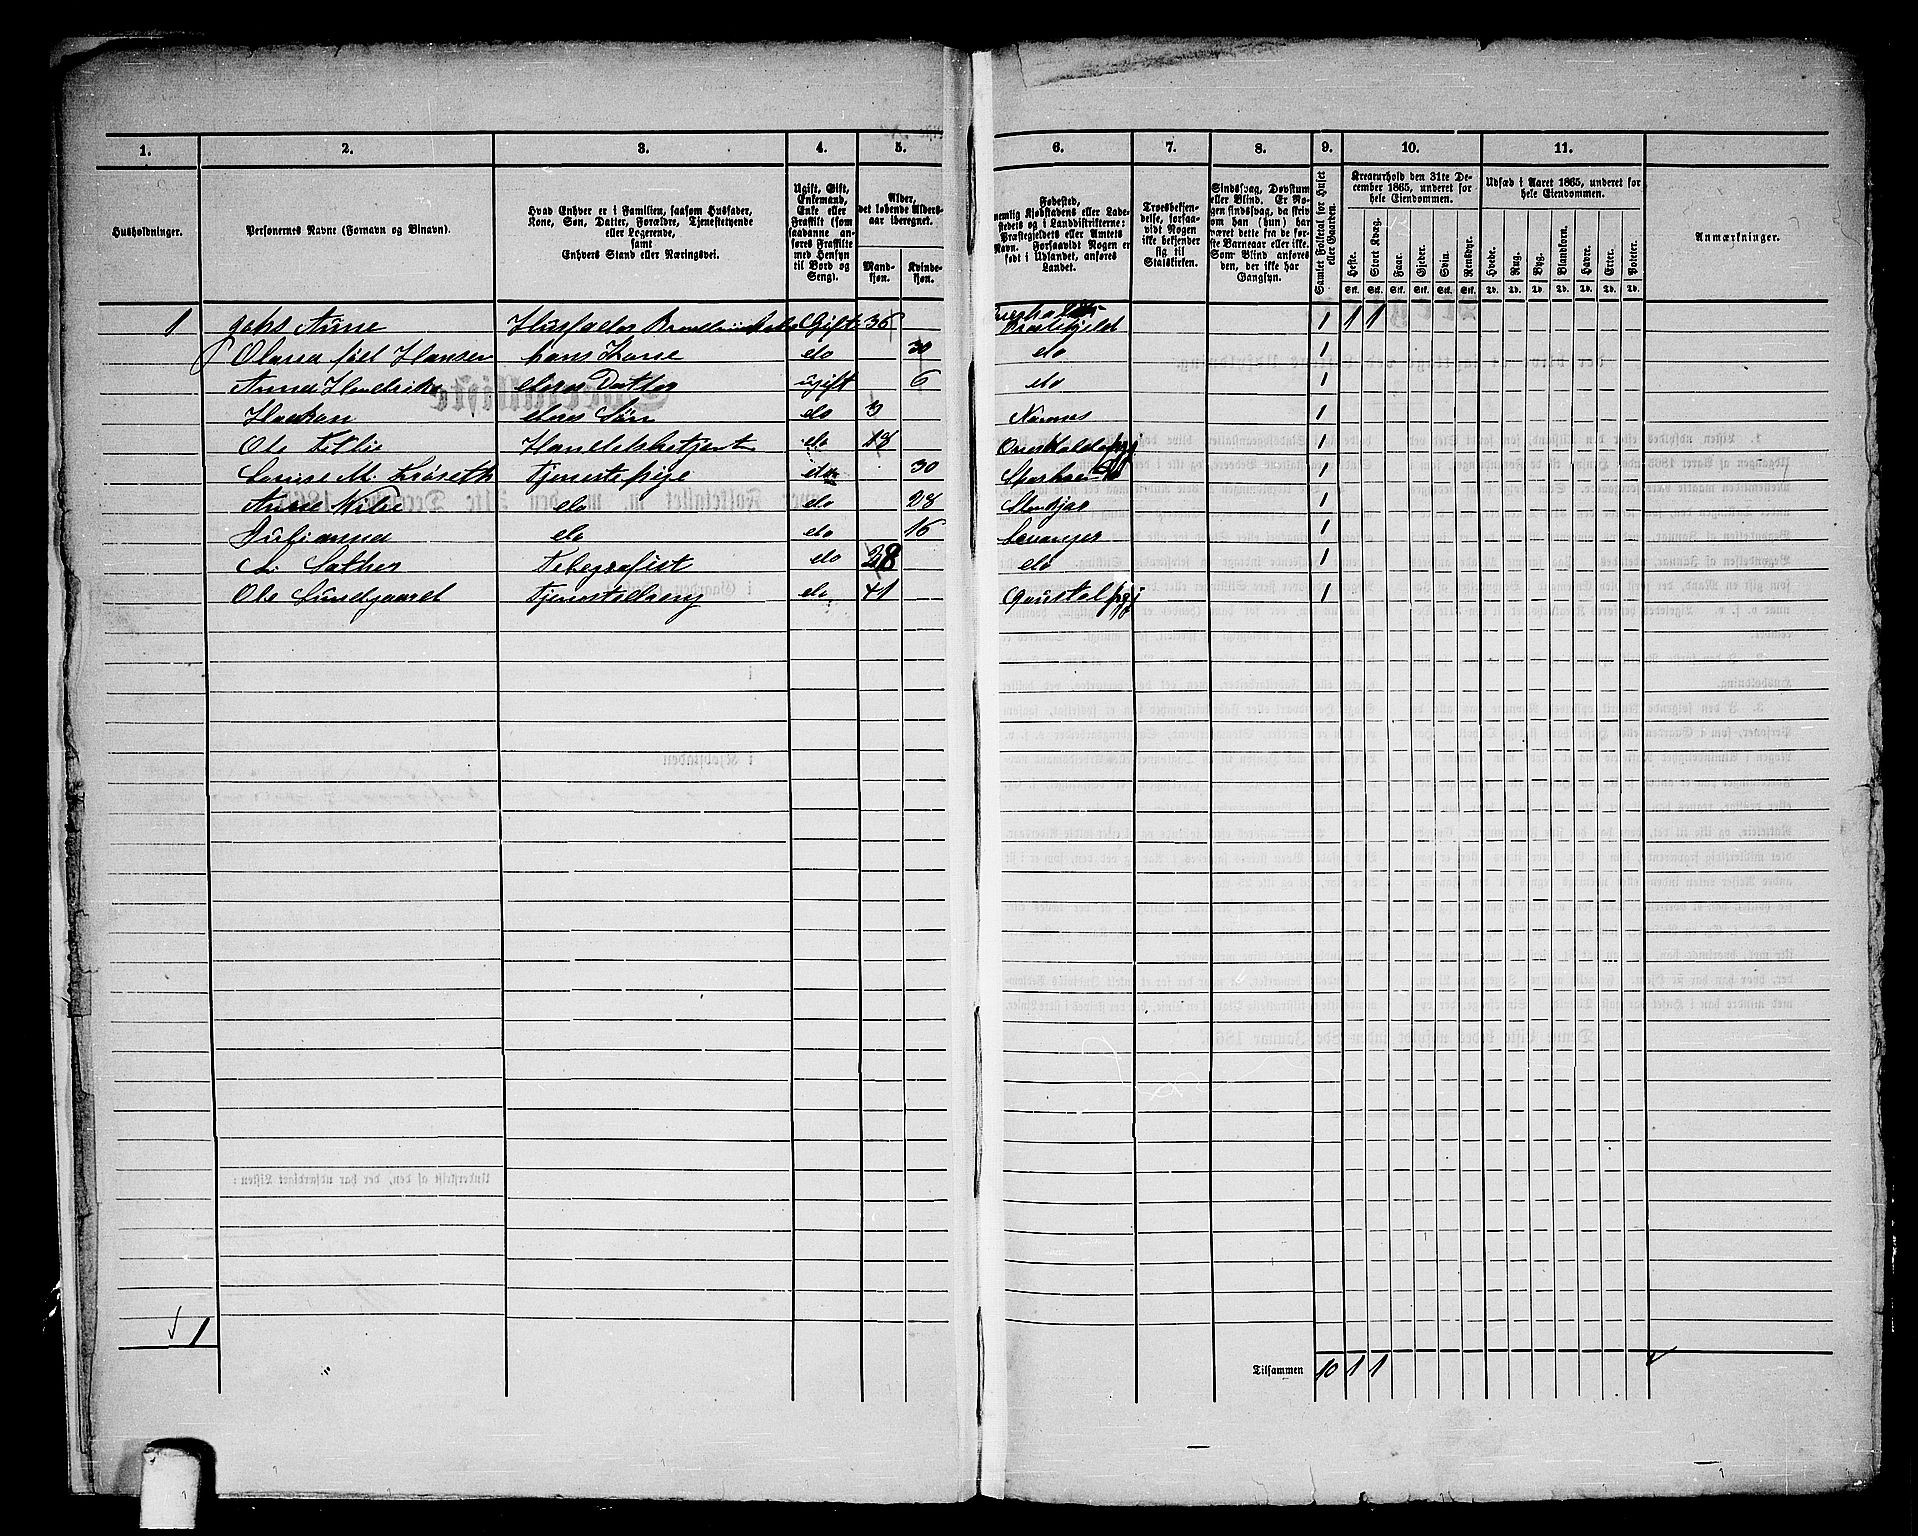 1. 2. 3. 4. 5. 6. 7. 8. 9. 10. 11.
Husholdninger.
Personernes Navne (Fornavn og Binavn).
Hvad Enhver er i Familien, saasom Husfader,
Kone, Søn, Datter, Forældre, Tjenestetyende
eller Logerende,
samt
Enhvers Stand eller Næringsvei.
Ugift, Gift,
Enkemand,
Enke eller
Fraskilt (som
saadanne an-
føres Fraskilte
med Hensyn
til Bord og
Seng).
Alder,
det løbende Alders-
aar iberegnet.
Mand-
kjøn.
Kvinde-
kjøn.
Fødested,
nemlig Kjøbstadens eller Lade-
stedets og i Landdistrikterne:
Præstegjeldets eller Amtets
Navn. Forsaavidt Nogen er
født i Udlandet, anføres
Landet.
Troesbekjen-
delse, forsaa-
vidt Nogen
ikke bekjender
sig til
Statskirken.
Sindssvag, Døvstum
eller Blind. Er No-
gen sindssvag, da skriv
om han (hun) har
været dette fra de før-
ste Barneaar eller ikke.
Som Blind anføres
den, der ikke har
Gangsyn.
Samlet Folketal for Huset
eller Gaarden.
Kreaturhold den 31te De-
cember 1865, underet for
hele Eiendommen.
Heste. Stort Kvæg. Faar. Gjeder. Svin. Rensdyr.
Stk. Stk. Stk. Stk. Stk. Stk.
Udsæd i Aaret 1865, underet for
hele Eiendommen.
Hvede. Rug. Byg. Blandkorn. Havre. Erter. Poteter.
Td. Td. Td. Td. Td. Td. Td.
Anmærkninger.
1 Aune Husfader Gift 36 Præstegjeld 1 1 1
Olava fød Hansen hans Kone do 30 do 1
Anna Hendrike deres Datter ugift 6 do 1
Haakon deres Søn do 3 Namsos 1
Ole Handelsbetjent do 18 1
Tjenestepige do 30 1
Anne do do 28 Stenkjær 1
Julianna do do 16 Levanger 1
Sather Telegrafist do 28 do 1
Ole Sundgaard Tjenestedreng do 41 1
1
Tilsammen 10 1 1